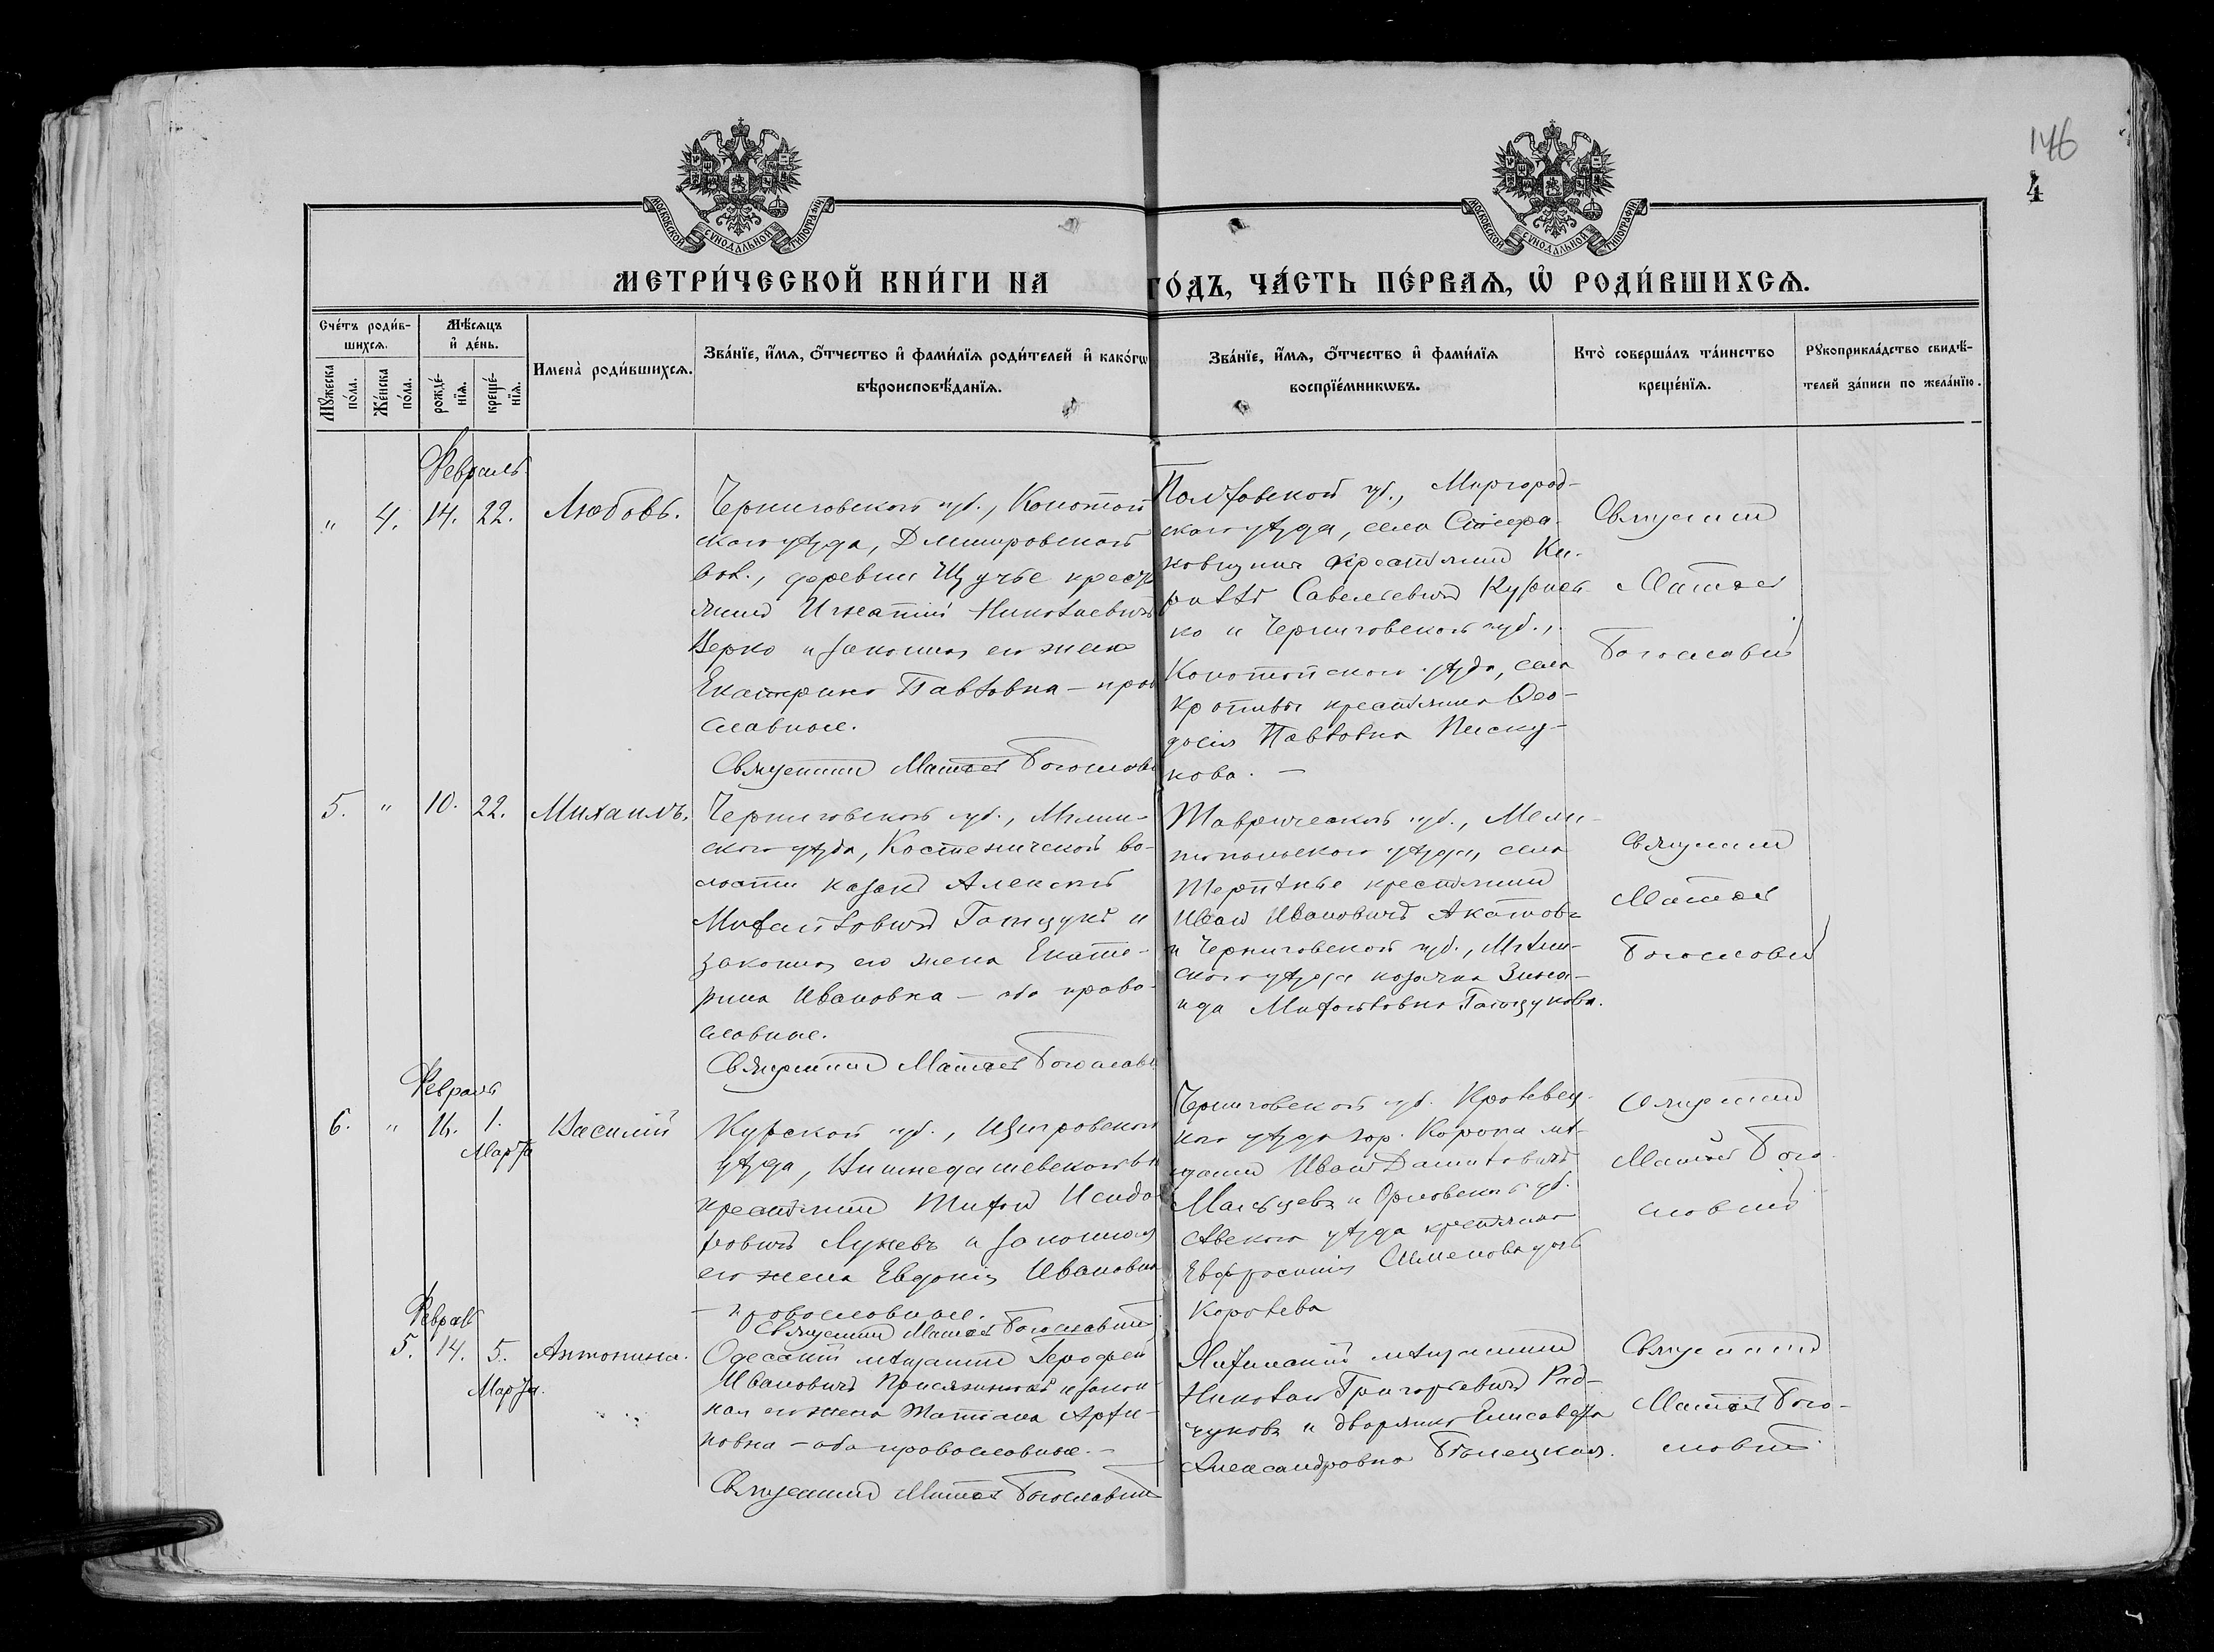 146
4
МОСКОВСКОЙ СѴНОДАЛЬНОЙ ТИПОГРАФІИ
МОСКОВСКОЙ СѴНОДАЛЬНОЙ ТИПОГРАФІИ
МЕТРИ́ЧЕСКОЙ КНИ́ГИ НА ГО́ДЪ, ЧА́СТЬ ПЕ́РВАѦ, Ѡ҆ РОДИ́ВШИХСѦ.
Сче́тъ роди́в-
шихсѧ.
Мꙋ́жеска по́ла.
Же́нска по́ла.
Мѣ́сѧцъ
и҆ де́нь.
рожде́-
нїѧ.
креще́-
нїѧ.
Имена̀ роди́вшихсѧ.
Зва́нїе, и҆́мѧ, ѻ҆́тчество и҆ фами́лїѧ роди́телей и҆ како́гѡ
вѣроисповѣ́данїѧ.
Зва́нїе, и҆́мѧ, ѻ҆́тчество и҆ фами́лїѧ
воспрїе́мникѡвъ.
Кто̀ соверша́лъ та́инство
креще́нїѧ.
Рꙋкоприкла́дство свидѣ́-
телей за́писи по жела́нїю.
Февраль
" 4. 14. 22. Любовь.
Черниговской губ., Конотоп
скаго уѣзда, Дмитровской
вол., деревни Щучье кресть
янинъ Игнатій Николаевичъ
Верко и законная его жена
Екатерина Павловна – прав
славные.
Священникъ Матѳей Богословс
Полтавской губ., Миргород-
скаго уѣзда, села
крестьянинъ Ки-
риллъ Савельевичъ
ко и Черниговской губ.,
Конотопскаго уѣзда, села
крестьянка Ѳео-
досія Павловна Писку-
нова. –
Священникъ
Матѳей
Богословскій
5. " 10. 22. Михаилъ.
Черниговской губ., Мглин-
скаго уѣзда, Костеничской во-
лости казакъ Алексѣй
Михайловичъ Гатцукъ и
законная его жена Екате-
рина Ивановна – оба право-
славные.
Священникъ Матѳей Богословс
Таврической губ., Мели-
топольскаго уѣзда, села
Терпѣнье крестьянинъ
Иванъ Ивановичъ Акатовъ
и Черниговской губ., Мглин-
скаго уѣзда казачка Зина-
ида Михайловна Гатцукова.
Священникъ
Матѳей
Богословскій
Февраль
6. " 1. Василій
Марта
Курской губ., Щигровскаго
уѣзда, вол
крестьянинъ Тихонъ Исидо
ровичъ Лукевъ и законная
его жена Евдокія Ивановна
– православные.
Священникъ Матѳей Богословскій
Черниговской губ. Кролевец-
каго уѣзда гор. Коропа мѣ-
щанин Иванъ Даниловичъ
Мальцевъ и Орловской губ.
Сѣвскаго уѣзда крестьянка
Евфросинія
Королева
Священникъ
Матѳей Бого-
словскій
Феврал
5. 14. 5. Антонина.
Марта.
Одесскій мѣщанинъ Герофей
Ивановичъ и закон
ная его жена Татіана
повна – оба православные. –
Священникъ Матѳей Богословскій
Ялтинскій мѣщанинъ
Николай Григорьевичъ Рад-
чуковъ и дворянка Елисавета
Александровна
Священникъ
Матѳей Бого-
словскій